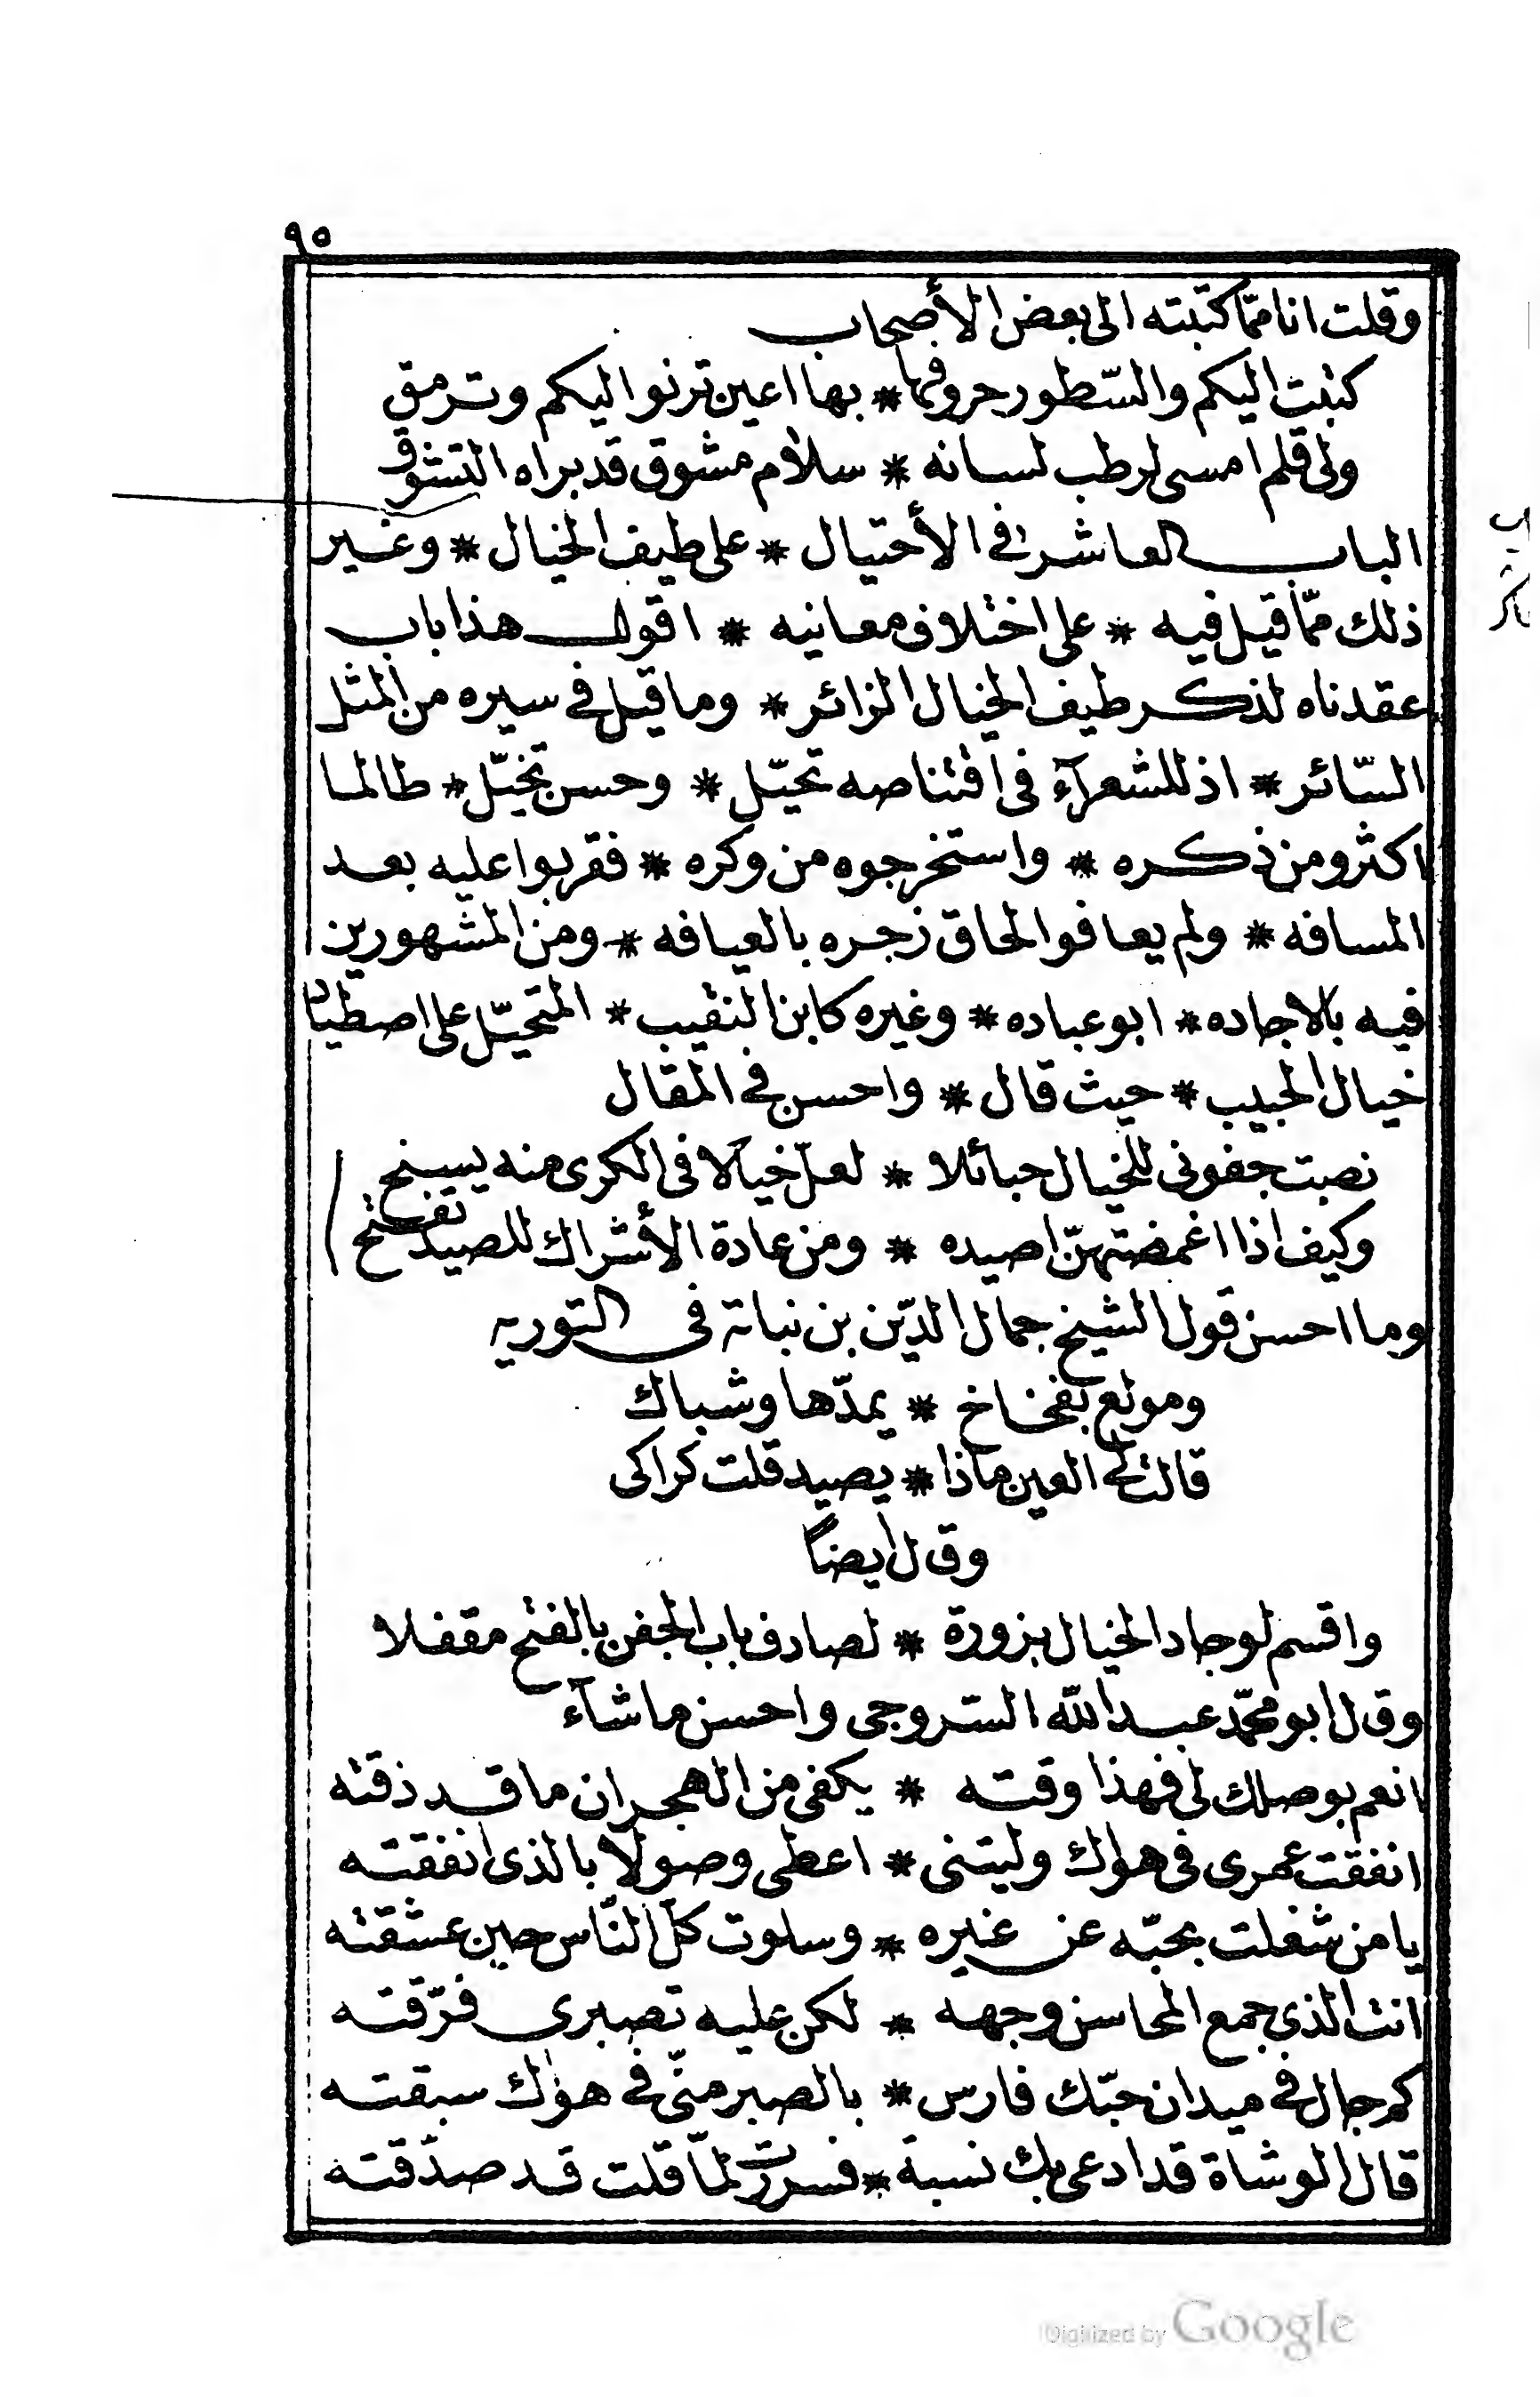 ٩٥
وقلت انا ممّا كتبته الى بعض الأصحاب
كتبت اليكم والسّطور حروفها * بها اعين ترنوا اليكم وترمق
ولى قلم امسى لرطب لسانه * سلام مشوق قد براه التشوق
الباب العاشر فى الأحتيال * على طيف الخيال * وغير
ذلك ممّا قيل فيه * على اختلاف معانيه * اقول هذا باب
عقدناه لذكر طيف الخيال الزائر * وما قيل فى سيره من المثل
السّائر * اذ للشعرآء فى اقتناصه تحيّل * وحسن تخيّل * طالما
اكثرو من ذكره * واستخرجوه من وكره * فقربوا عليه بعد
المسافه * ولم يعافوا لحاق زجره بالعيافه * ومن المشهورين
فيه بالاجاده * ابو عباده * وغيره كابن النقيب * المتحيّل على اصطياد
خيال الحبيب * حيث قال * واحسن فى المقال
نصبت جفونى للخيال حبائلا * لعلّ خيالا فى الكرى منه يسنح
وكيف اذا اغمضتهنّ اصيده * ومن عادة الأشراك للصيد تفتح
وما احسن قول الشيخ جمال الدّين بن نباتة فى التوريه
ومولع بفخاخ * يمدّها وشباك
قالت لى العين ماذا * يصيد قلت كراكى
وقال ايضاً
واقسم لو جاد الخيال بزورة * لصادف باب الجفن بالفتح مقفلا
وقال ابو محمّد عبد الله السّروجى واحسن ما شآء
انعم بوصلك لى فهذا وقته * يكفى من الهجران ما قد ذقته
انفقت عمرى فى هواك وليتنى * اعطى وصولا بالذى انفقته
يا من شغلت بحبّه عن غيره * وسلوت كلّ النّاس حين عشقته
انت الذى جمع المحاسن وجهه * لكن عليه تصبرى فرّقته
كم جال فى ميدان حبّك فارس * بالصبر منّى فى هواك سبقته
قال الوشاة قد ادعى بك نسبة * فسررت لمّا قلت قد صدّقته
Digitized by Google